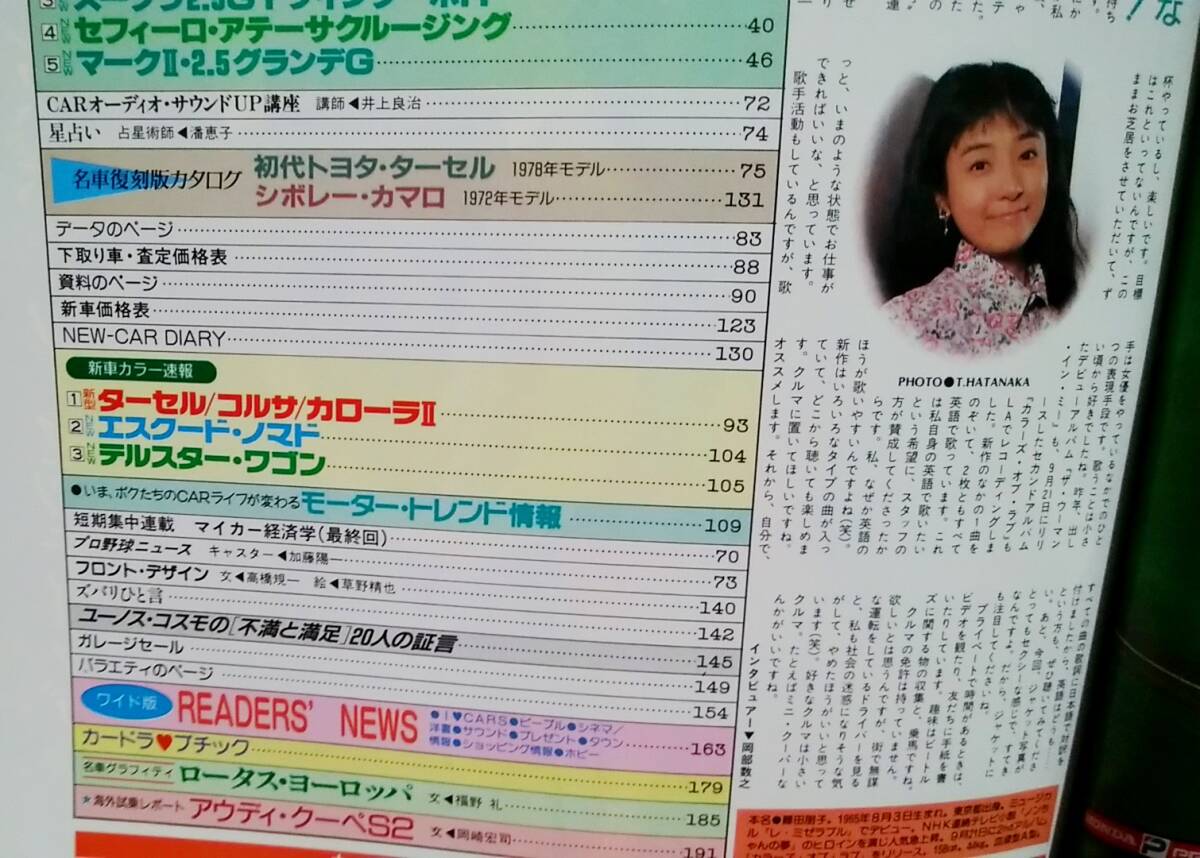 ③NEW スープラ2.5GTツインターボR
④NEW セフィーロ・アテーサクルージング 40
⑤NEW マークⅡ・2.5グランデG 46
CARオーディオ・サウンドUP講座 講師◀井上良治 72
星占い 占星術師◀潘恵子 74
名車復刻版カタログ
初代トヨタ・ターセル 1978年モデル 75
シボレー・カマロ 1972年モデル 131
データのページ 83
下取り車・査定価格表 88
資料のページ 90
新車価格表 123
NEW-CAR DIARY 130
新車カラー速報
①新型 ターセル/コルサ/カローラⅡ 93
②NEW エスクード・ノマド 104
③NEW テルスター・ワゴン 105
●いま、ボクたちのCARライフが変わる モーター・トレンド情報 109
短期集中連載 マイカー経済学(最終回) 70
プロ野球ニュース キャスター◀加藤陽一 73
フロント・デザイン 女◀高橋規一 絵◀草野精也 140
ズバリひと言 142
ユーノス・コスモの[不満と満足]20人の証言 145
ガレージセール 149
バラエティのページ 154
ワイド版 READERS' NEWS 163
●I♥CARS●ピープル●シネマ/
洋書●サウンド●プレゼント●タウン
情報●ショッピング情報●ホビー
カードラ♥プチック 179
名車グラフィティ ロータス・ヨーロッパ 女◀福野 礼 185
★海外試乗レポート アウディ・クーペS2 女◀岡崎宏司 191
杯やっているし、楽しいです。目標
はこれといってないんですが、この
ままお芝居をさせていただいて、ず
っと、いまのような状態でお仕事が
できればいいな、と思っています。
歌手活動もしているんですが、歌
PHOTO●T.HATANAKA
手は女優をやっているなかでのひと
つの表現手段です。歌うことは小さ
い頃から好きでしたね。昨年、出し
たデビューアルバム『ザ・ウーマン
・イン・ミー』も、9月21日にリリ
ースしたセカンドアルバム
『カラーズ・オブ・ラブ』も
LAでレコーディングしま
した。新作のなかの1曲を
のぞいて、2枚ともすべて
英語で歌っています。これ
は私自身の英語で歌いたい
という希望に、スタッフの
方が賛成してくださったか
らです。私、なぜか英語の
ほうが歌いやすいんですよね(笑)。
新作はいろいろなタイプの曲が入っ
ていて、どこから聴いても楽しめま
す。クルマに置いてほしいですね。
オススメします。それから、自分で、
すべての曲の歌詞に日本語で対訳を
付けましたから、英語はどうも……
という方も、ぜひ聴いてみてくださ
い。あと、今回、ジャケット写真が
とってもセクシーな感じで、すてき
なんですよ。だから、ジャケットに
も注目してくださいね。
プライベートで時間があるときは、
ビデオを観たり、友だちに手紙を書
いたりしています。趣味はビートル
ズに関する物の収集と、乗馬ですね。
クルマの免許は持っていません。
欲しいとは思うんですが、街で無謀
な運転をしているドライバーを見る
と、私も社会の迷惑になりそうな気
がして、やめたほうがいいと思って
います(笑)。好きなクルマは小さい
クルマ。たとえばミニ・クーパーな
んかがいいですね。
インタビュアー▼岡部数之
本名●藤田朋子。1965年8月3日生まれ。東京都出身。ミュージカ
ル『レ・ミゼラブル』でデビュー。NHK連続テレビ小説『ノンち
ゃんの夢』のヒロインを演じ人気急上昇。9月21日に2ndアルバム
『カラーズ・オブ・ラブ』をリリース。158cm、44kg。血液型A型。
HONDA